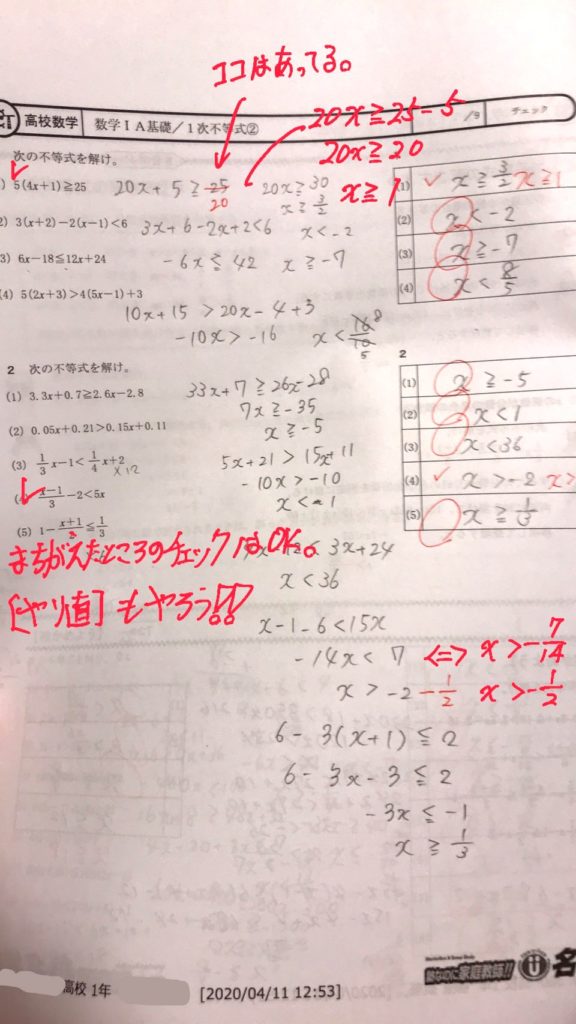 ココはあってる。
高校数学 数学ⅠA基礎/1次不等式② /9 チェック
20x≧25-5
20x≧20
x≧1
次の不等式を解け。
5(4x+1)≧25 20x+5≧25 20 20x≧30
x≧3/2
2) 3(x+2)-2(x-1)<6 3x+6-2x+2<6 x<-2
3) 6x-18≦12x+24 -6x≦42 x≧-7
(4) 5(2x+3)>4(5x-1)+3
10x+15>20x-4+3
-10x>-16 x<16/10 8 5
(1) ✓ x≧3/2 x≧1
(2) x<-2
(3) x≧-7
(4) x<8/5
2 次の不等式を解け。
(1) 3.3x+0.7≧2.6x-2.8 33x+7≧26x-28
7x≧-35
x≧-5
(2) 0.05x+0.21>0.15x+0.11
(3) 1/3x-1<1/4x+2 ×12 5x+21>15x+11
-10x>-10
x<1
x-1/3-2<5x
(5) 1-x+1/2≦1/3
2
(1) x≧-5
(2) x<1
(3) x<36
(4) ✓ x>-2 x>
(5) x≧1/3
まちがえたところのチェックはOK。
3x+24
x<36
[ヤリ値]もやろう!!
x-1-6<15x
-14x<7 ⇔ x>-7/14
x>-2 -1/2 x>-1/2
6-3(x+1)≦2
6-3x-3≦2
-3x≦-1
x≧1/3
家庭教師!! 名
高校 1年 [2020/04/11 12:53]